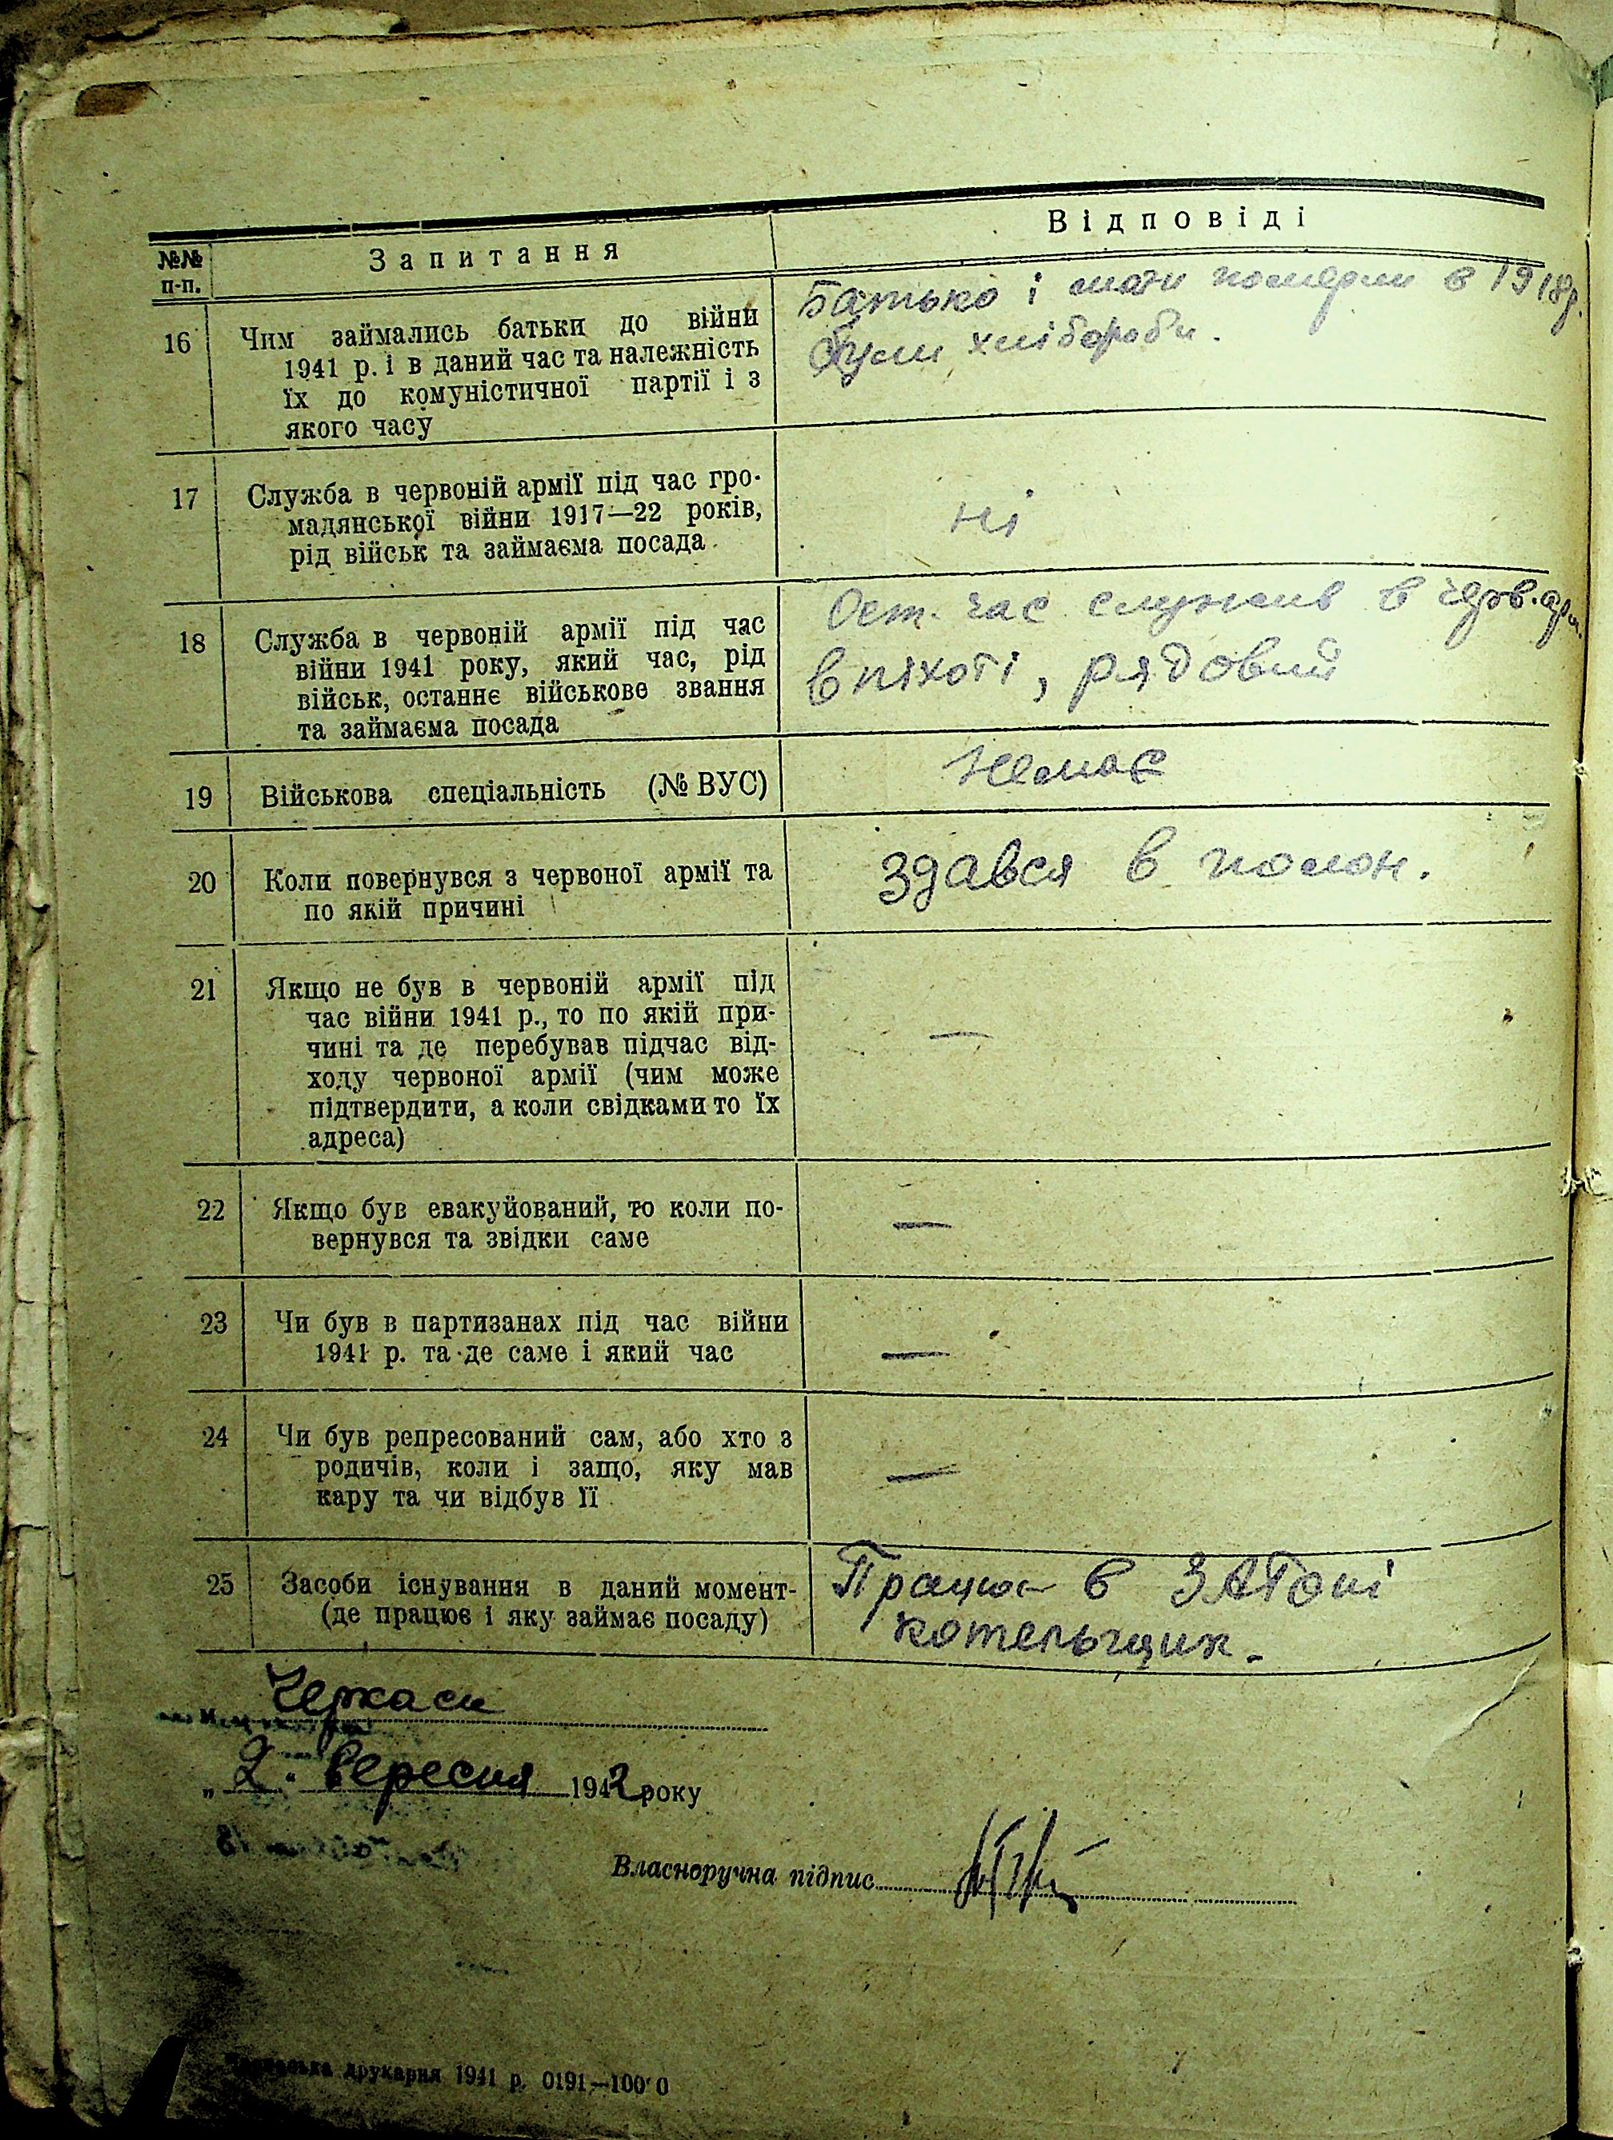 №№ п-п.
Запитання
Відповіді
16
Чим займались батьки до війни
1941 р. і в даний час та належність
їх до комуністичної партії і з
якого часу
Батько і мати померли в 1918р.
були хлібороби.
17
Служба в червоній армії під час гро-
мадянської війни 1917—22 років,
рід військ та займаєма посада
ні
18
Служба в червоній армії під час
війни 1941 року, який час, рід
військ, останнє військове звання
та займаєма посада
Ост. час служив в черв. арм.
в піхоті, рядовий
19
Військова спеціальність (№ ВУС)
Немає
20
Коли повернувся з червоної армії та
по якій причині
Здався в полон.
21
Якщо не був в червоній армії під
час війни 1941 р., то по якій при-
чині та де перебував підчас від-
ходу червоної армії (чим може
підтвердити, а коли свідками то їх
адреса)
—
22
Якщо був евакуйований, то коли по-
вернувся та звідки саме
—
23
Чи був в партизанах під час війни
1941 р. та де саме і який час
—
24
Чи був репресований сам, або хто з
родичів, коли і защо, яку мав
кару та чи відбув її
—
25
Засоби існування в даний момент-
(де працює і яку займає посаду)
Працюю в ЗАТоні
котельщик.
Черкаси
„2" вересня 1942 року
Власноручна підпис
друкарня 1941 р. 0191—100 0